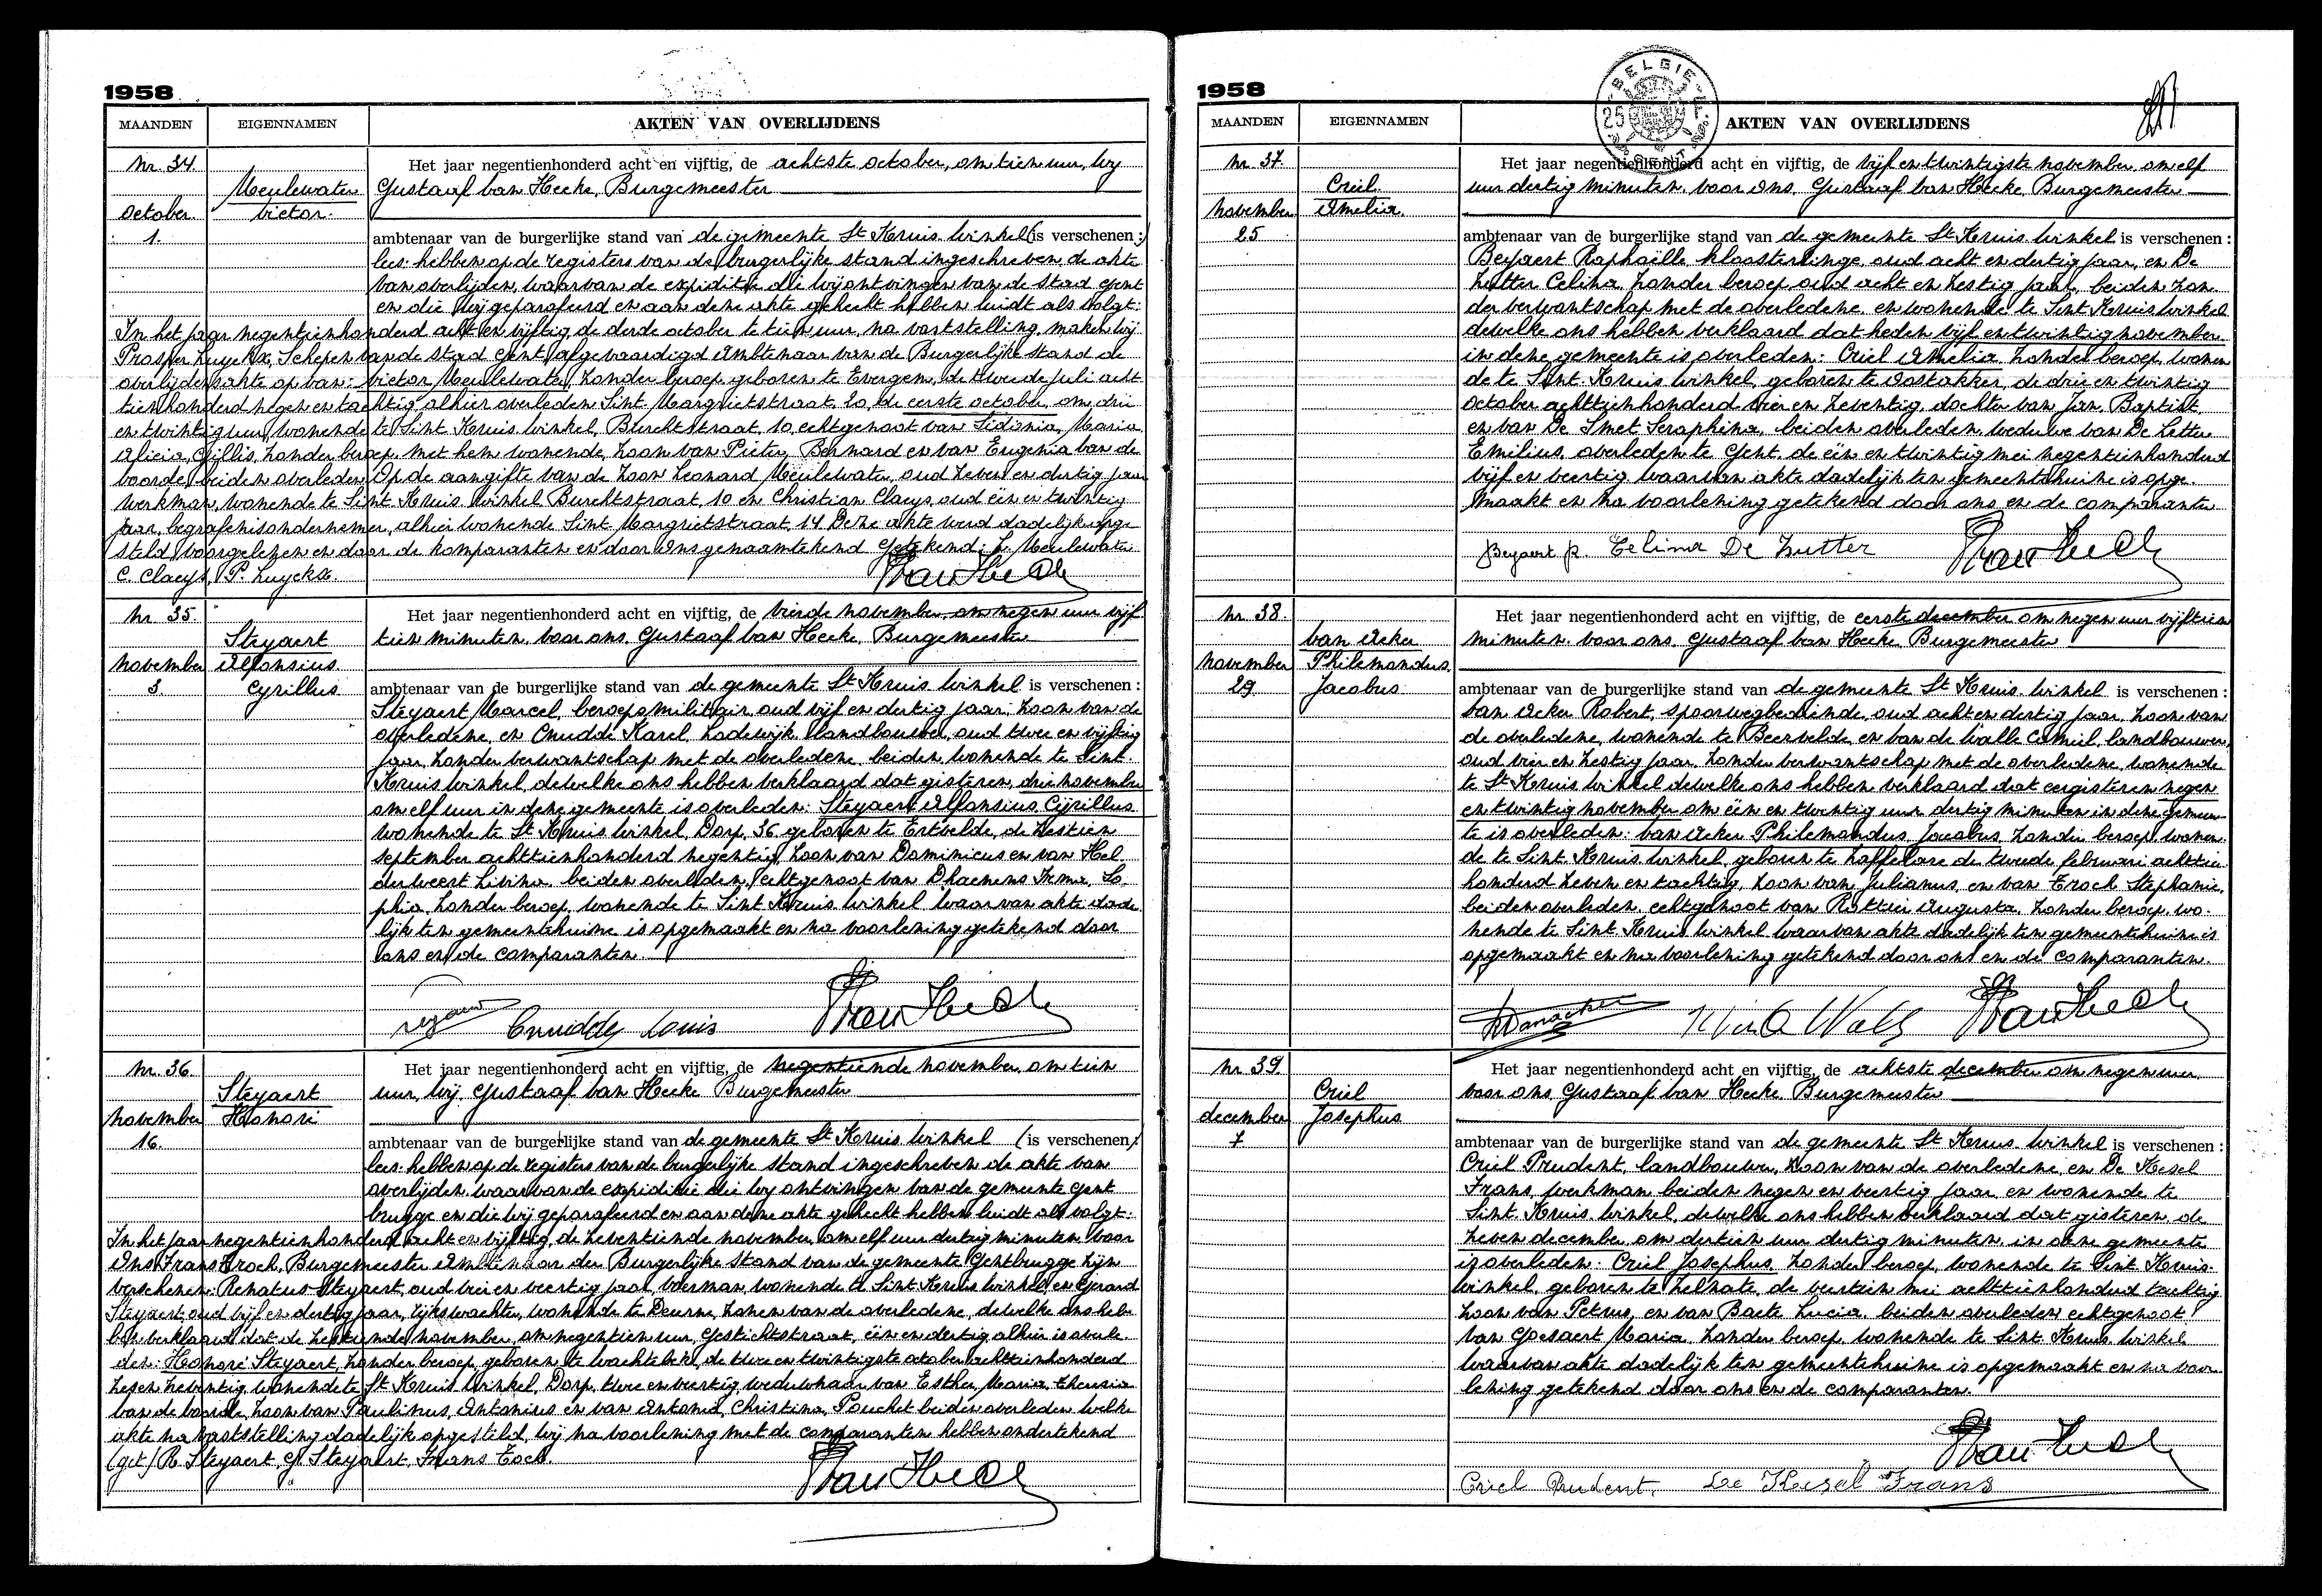 1958
MAANDEN EIGENNAMEN AKTEN VAN OVERLIJDENS
Nr. 34. Het jaar negentienhonderd acht en vijftig, de achtste october, om tien uur, wij
Meulewater Gustaaf van Hecke, Burgemeester
October Victor.
1. ambtenaar van de burgerlijke stand van de gemeente St Kruis Winkel (is verschenen:)
lees: hebben op de registers van de burgerlijke stand ingeschreven de akte
van overlijden, waarvan de expeditie die wij ontvingen van de stad Gent
en die wij geparafeerd en aan deze akte gehecht hebben luidt als volgt:
In het jaar negentienhonderd acht en vijftig de derde october te tien uur, na vaststelling, maken wij
Prosper Luyckx, Schepen van de stad Gent, afgevaardigd Ambtenaar van de Burgerlijke stand de
overlijdensakte op van: Victor Meulewater, zonder beroep, geboren te Evergem, de tweede juli acht
tienhonderd negen en tachtig alhier overleden Sint Margrietstraat, 20, de eerste october, om drie
en twintig uur, wonende te Sint Kruis Winkel, Burchtstraat, 10, echtgenoot van Sidonia, Maria
Alicia, Gillis, zonder beroep, met hem wonende, zoon van Pieter, Bernard en van Eugenia van de
Voorde, beiden overleden. Op de aangifte van de zoon Leonard Meulewater, oud zeven en dertig jaar
werkman, wonende te Sint Kruis Winkel Burchtstraat, 10 en Christian Claeys, oud één en twintig
jaar, begrafenisondernemer, alhier wonende Sint Margrietstraat 14. Deze akte werd dadelijk opge
steld, voorgelezen en door de komparanten en door Ons genaamtekend. Getekend: L. Meulewater
C. Claeys, P. Luyckx.
Nr. 35. Het jaar negentienhonderd acht en vijftig, de vierde november, om negen uur vijf
Steyaert tien minuten, voor ons, Gustaaf van Hecke, Burgemeester
November Alfonsius
3. Cyrillus ambtenaar van de burgerlijke stand van de gemeente St Kruis Winkel is verschenen:
Steyaert Marcel, beroepsmilitair, oud vijf en dertig jaar, zoon van de
overledene, en Cnudde Karel, Lodewijk, landbouwer, oud twee en vijftig
jaar, zonder verwantschap met de overledene, beiden wonende te Sint
Kruis Winkel, dewelke ons hebben verklaard dat gisteren, drie november
om elf uur in deze gemeente is overleden: Steyaert Alfonsius, Cyrillus
wonende te St Kruis Winkel, Dorp, 36 geboren te Ertvelde, de zestien
september achttienhonderd negentig, zoon van Dominicus en van Hel
derweert Livina, beiden overleden, echtgenoot van Dhaenens Irma, So
phia, zonder beroep, wonende te Sint Kruis Winkel waarvan akte dade
lijk ten gemeentehuize is opgemaakt en na voorlezing getekend door
ons en de comparanten.
Cnudde Louis Van Hecke
Nr. 36. Het jaar negentienhonderd acht en vijftig, de negentiende november, om tien
Steyaert uur, wij Gustaaf van Hecke Burgemeester
November Honoré
16. ambtenaar van de burgerlijke stand van de gemeente St Kruis Winkel (is verschenen)
lees: hebben op de registers van de burgerlijke stand ingeschreven de akte van
overlijden waarvan de expeditie die wij ontvingen van de gemeente Gent
brugge en die wij geparafeerd en aan deze akte gehecht hebben luidt als volgt:
In het jaar negentienhonderd acht en vijftig, de zeventiende november, om elf uur dertig minuten, voor
Ons Frans Toch, Burgemeester Ambtenaar der Burgerlijke stand van de gemeente Gentbrugge zijn
verschenen: Renatus Steyaert, oud vier en veertig jaar, voerman, wonende te Sint Kruis Winkel, en Gerard
Steyaert, oud vijf en dertig jaar, rijkswachter, wonende te Deurne, zonen van de overledene, dewelke ons heb
ben verklaard dat de zestiende november, om negentien uur, Gestichtstraat, één en dertig, alhier is overle
den: Honoré Steyaert, zonder beroep, geboren te Wachtebeke, de twee en twintigste october achttienhonderd
zeven zeventig, wonende te St Kruis Winkel, Dorp, twee en veertig, weduwnaar van Esther, Maria, Theresia
van de Voorde, zoon van Paulinus, Antonius en van Antonia, Christina, Pouchet beiden overleden welke
akte na vaststelling dadelijk opgesteld, wij na voorlezing met de comparanten hebben ondertekend
(get) R. Steyaert, G. Steyaert, Frans Toch.
Van Hecke
1958
MAANDEN EIGENNAMEN AKTEN VAN OVERLIJDENS
BELGIE 25
Nr. 37. Het jaar negentienhonderd acht en vijftig, de vijf en twintigste november, om elf
Criel uur dertig minuten, voor ons, Gustaaf van Hecke, Burgemeester
November Amelia.
25 ambtenaar van de burgerlijke stand van de gemeente St Kruis Winkel is verschenen:
Beyaert Raphaëlle, kloosterlinge, oud acht en dertig jaar, en De
Zutter Celina, zonder beroep, oud acht en zestig jaar, beiden zon
der verwantschap met de overledene, en wonende te Sint Kruis Winkel
dewelke ons hebben verklaard dat heden vijf en twintig november
in deze gemeente is overleden: Criel Amelia, zonder beroep, wonen
de te Sint Kruis Winkel, geboren te Oostakker, de drie en twintig
october achttienhonderd vier en zeventig, dochter van Jan, Baptist,
en van De Smet Seraphina, beiden overleden, weduwe van De Letter
Emilius, overleden te Gent, de één en twintig mei negentienhonderd
vijf en veertig waarvan akte dadelijk ten gemeentehuize is opge
maakt en na voorlezing getekend door ons en de comparanten
Beyaert R. Celina De Zutter Van Hecke
Nr. 38. Het jaar negentienhonderd acht en vijftig, de eerste december om negen uur vijftien
Van Acker minuten, voor ons, Gustaaf van Hecke Burgemeester
November Philemondus.
29 Jacobus ambtenaar van de burgerlijke stand van de gemeente St Kruis Winkel is verschenen:
Van Acker Robert, spoorwegbediende, oud acht en dertig jaar, zoon van
de overledene, wonende te Beervelde, en van de Walle Camiel, landbouwer,
oud vier en zestig jaar, zonder verwantschap met de overledene, wonende
te St Kruis Winkel dewelke ons hebben verklaard dat eergisteren negen
en twintig november om één en twintig uur dertig minuten in deze gemeen
te is overleden: Van Acker Philemondus, Jacobus, zonder beroep, wonen
de te Sint Kruis Winkel, geboren te Zaffelare de tweede februari achttien
honderd zeven en tachtig, zoon van Julianus, en van Troch Stephanie,
beiden overleden, echtgenoot van Rottier Augusta, zonder beroep, wo
nende te Sint Kruis Winkel waarvan akte dadelijk ten gemeentehuize is
opgemaakt en na voorlezing getekend door ons en de comparanten.
RVanacker Van Hecke
Nr. 39. Het jaar negentienhonderd acht en vijftig, de achtste december om negen uur
Criel voor ons Gustaaf van Hecke Burgemeester
December Josephus
7 ambtenaar van de burgerlijke stand van de gemeente St Kruis Winkel is verschenen:
Criel Prudent, landbouwer, zoon van de overledene, en De Kesel
Frans, werkman beiden negen en veertig jaar en wonende te
Sint Kruis Winkel, dewelke ons hebben verklaard dat gisteren, de
zeven december om dertien uur dertig minuten in deze gemeente
is overleden: Criel Josephus, zonder beroep, wonende te Sint Kruis
Winkel, geboren te Zelzate, de veertien mei achttienhonderd tachtig
zoon van Petrus, en van Baete Lucia, beiden overleden echtgenoot
van Goesaert Maria, zonder beroep, wonende te Sint Kruis Winkel
waarvan akte dadelijk ten gemeentehuize is opgemaakt en na voor
lezing getekend door ons en de comparanten.
Van Hecke
Criel Prudent. De Kesel Frans